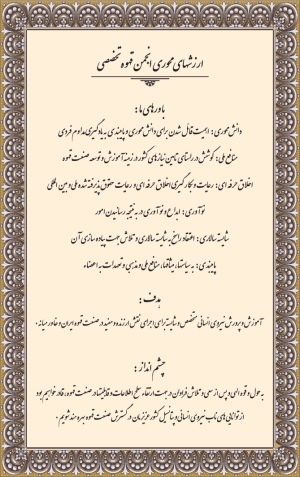 ارزشهای محوری انجمن قهوه تخصصی
باورهای ما :
دانش محوری : اهمیت قائل شدن برای دانش محوری و پایبندی به یادگیری مداوم فردی
منافع ملی : کوشش در راستای تامین نیازهای کشور در زمینه آموزش و توسعه صنعت قهوه
اخلاق حرفه ای : رعایت و بکارگیری اخلاق حرفه ای و رعایت حقوق پذیرفته شده ملی و بین المللی
نوآوری : ابداع و نوآوری در به نتیجه رسانیدن امور
شایسته سالاری : اعتقاد راسخ به شایسته سالاری و تلاش جهت پیاده سازی آن
پایبندی : به سیاستها، میثاقها، منافع ملی و مذهبی و تعهدات به اعضاء
هدف :
آموزش و پرورش نیروی انسانی متخصص و شایسته برای اجرای نقش ارزنده و مفید در صنعت قهوه ایران و خاورمیانه .
چشم انداز :
به حول و قوه الهی و پس از سعی و تلاش فراوان در جهت ارتقاء سطح اطلاعات و قابلیتها در صنعت قهوه، قادر خواهیم بود
از توانایی های ناب نیروی انسانی و پتانسیل کشور عزیزمان در گسترش صنعت قهوه بهره مند شویم .